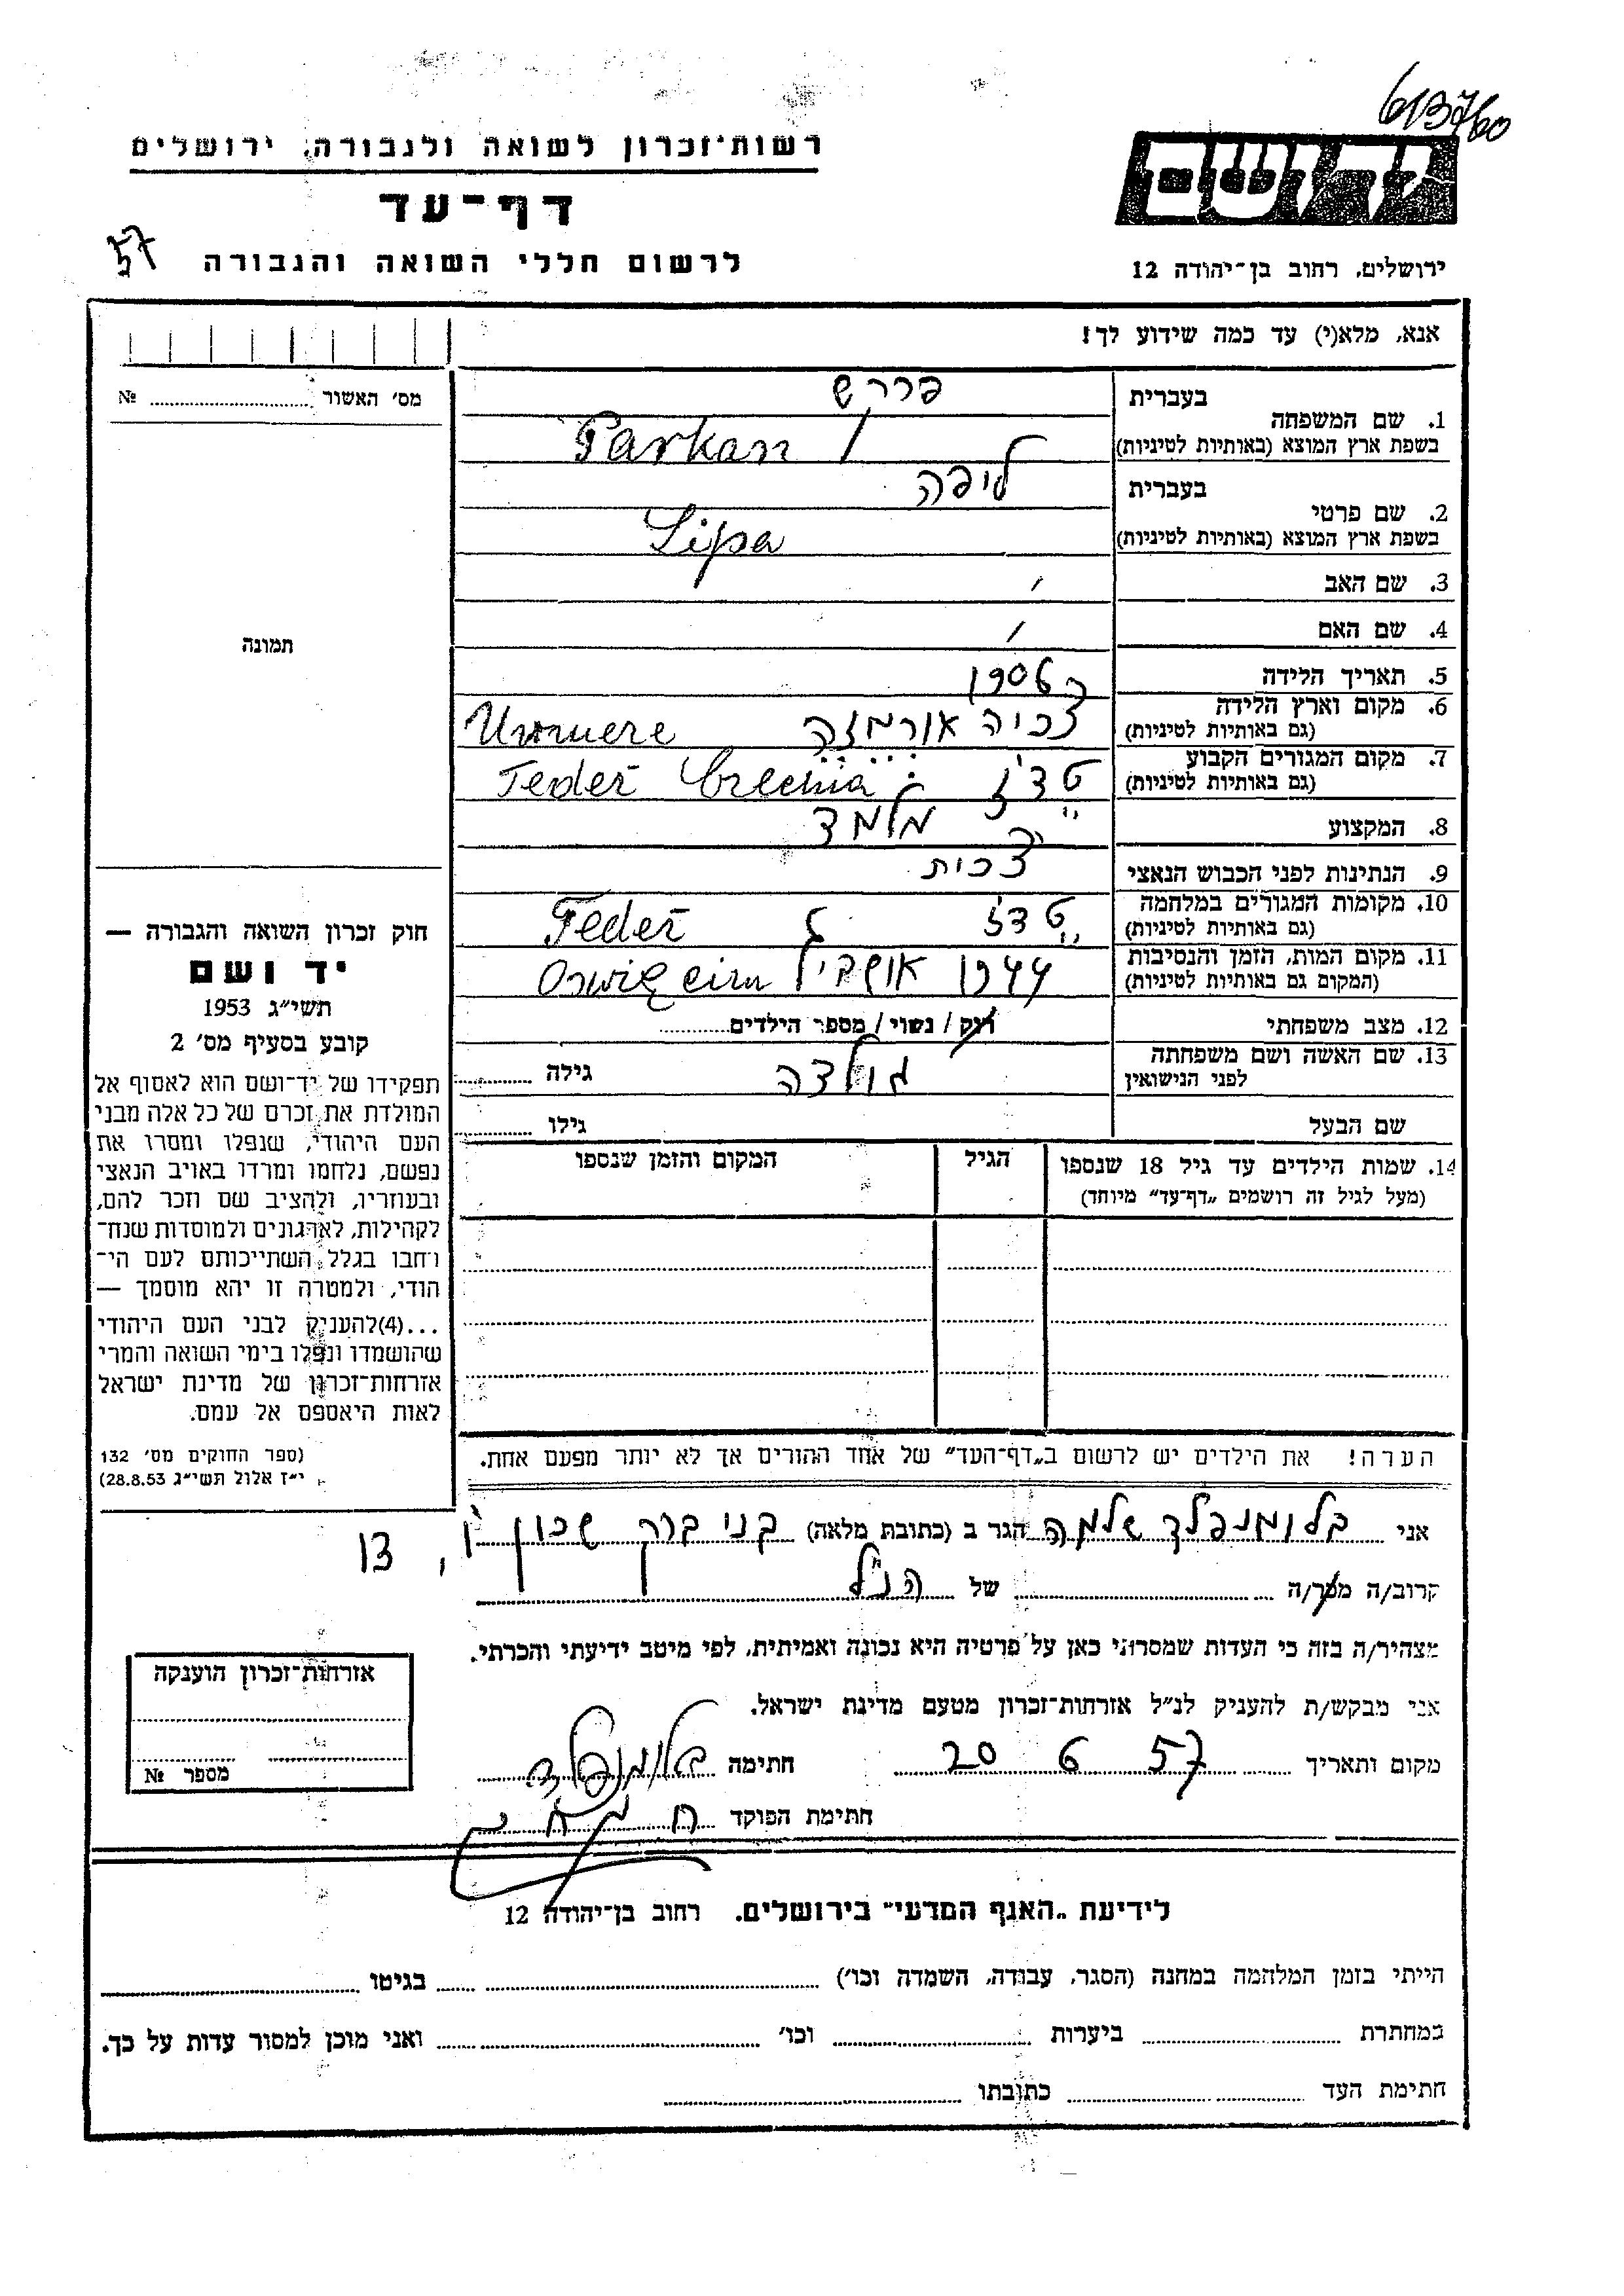 613760
רשות־זכרון לשואה ולגבורה, ירושלים
דף־עד
לרשום חללי השואה והגבורה
57
ירושלים, רחוב בן־יהודה 12
אנא, מלא(י) עד כמה שידוע לך!
מס׳ האשור № 
בעברית
1. שם המשפחה
בשפת ארץ המוצא (באותיות לטיניות)
Parkan
בעברית ליפה
2. שם פרטי
בשפת ארץ המוצא (באותיות לטיניות) Lipa
3. שם האב
4. שם האם
תמונה
5. תאריך הלידה 1906
6. מקום וארץ הלידה
(גם באותיות לטיניות)
7. מקום המגורים הקבוע
(גם באותיות לטיניות)
8. המקצוע מלמד
9. הנתינות לפני הכבוש הנאצי צכית
10. מקומות המגורים במלחמה
(גם באותיות לטיניות)
11. מקום המות, הזמן והנסיבות 1944
(המקום גם באותיות לטיניות)
12. מצב משפחתי רוק / נשוי / מספר הילדים
13. שם האשה ושם משפחתה גולדה גילה
לפני הנישואין
שם הבעל גילו
14. שמות הילדים עד גיל 18 שנספו הגיל המקום והזמן שנספו
(מעל לגיל זה רושמים „דף־עד” מיוחד)
הערה! את הילדים יש לרשום ב„דף־העד” של אחד ההורים אך לא יותר מפעם אחת.
חוק זכרון השואה והגבורה —
יד ושם
תשי״ג 1953
קובע בסעיף מס׳ 2
תפקידו של יד־ושם הוא לאסוף אל
המולדת את זכרם של כל אלה מבני
העם היהודי, שנפלו ומסרו את
נפשם, נלחמו ומרדו באויב הנאצי
ובעוזריו, ולהציב שם וזכר להם,
לקהילות, לארגונים ולמוסדות שנח־
רחבו בגלל השתייכותם לעם הי־
הודי, ולמטרה זו יהא מוסמך —
...(4)להעניק לבני העם היהודי
שהושמדו ונפלו בימי השואה והמרי
אזרחות־זכרון של מדינת ישראל
לאות היאספם אל עמם.
(ספר החוקים מס׳ 132
י״ז אלול תשי״ג 28.8.53)
אני בלומנפלד שלמה הגר ב (כתובת מלאה) בני ברק שכון ו׳, 13
קרוב/ה מכר/ה של הנ״ל
מצהיר/ה בזה כי העדות שמסרתי כאן על פרטיה היא נכונה ואמיתית, לפי מיטב ידיעתי והכרתי.
אני מבקש/ת להעניק לנ״ל אזרחות־זכרון מטעם מדינת ישראל.
מקום ותאריך 20 6 57 חתימה בלומנפלד
חתימת הפוקד
אזרחות־זכרון הוענקה
מספר №
לידיעת „האגף המדעי” בירושלים. רחוב בן־יהודה 12
הייתי בזמן המלחמה במחנה (הסגר, עבודה, השמדה וכו׳) בגיטו
במחתרת ביערות וכו׳ ואני מוכן למסור עדות על כך.
חתימת העד כתובתו